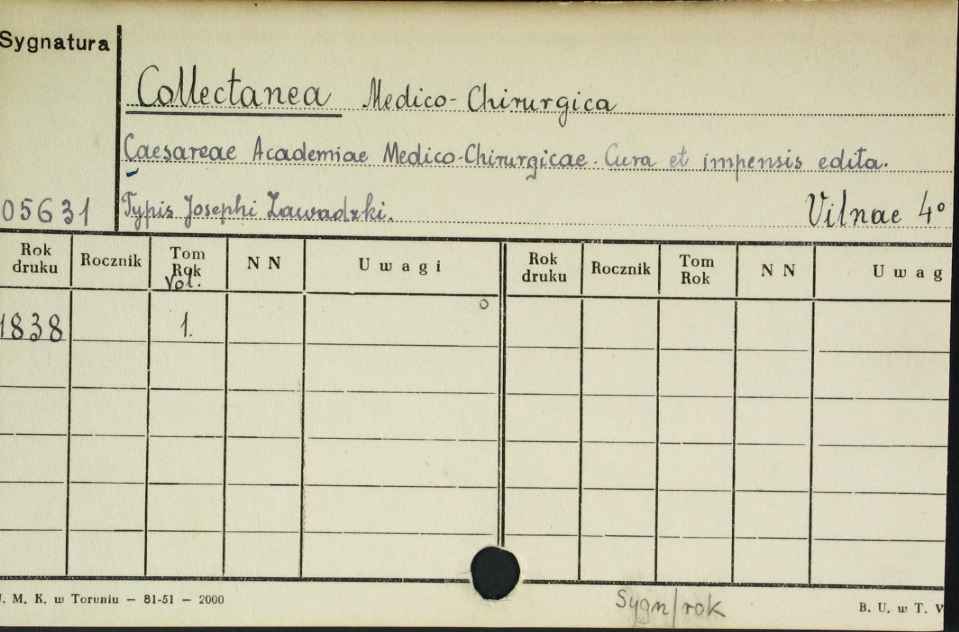 Sygnatura
Collectanea Medico-Chirurgica
Caesareae Academiae Medico-Chirurgicae. Cura et impensis edita.
05631 Typis Josephi Zawadzki. Vilnae 4°
Rok druku Rocznik Tom Rok Vol. N N Uwagi Rok druku Rocznik Tom Rok N N Uwag
1838 1.
J. M. K. w Toruniu — 81-51 — 2000
Sygn/rok
B. U. w T. V